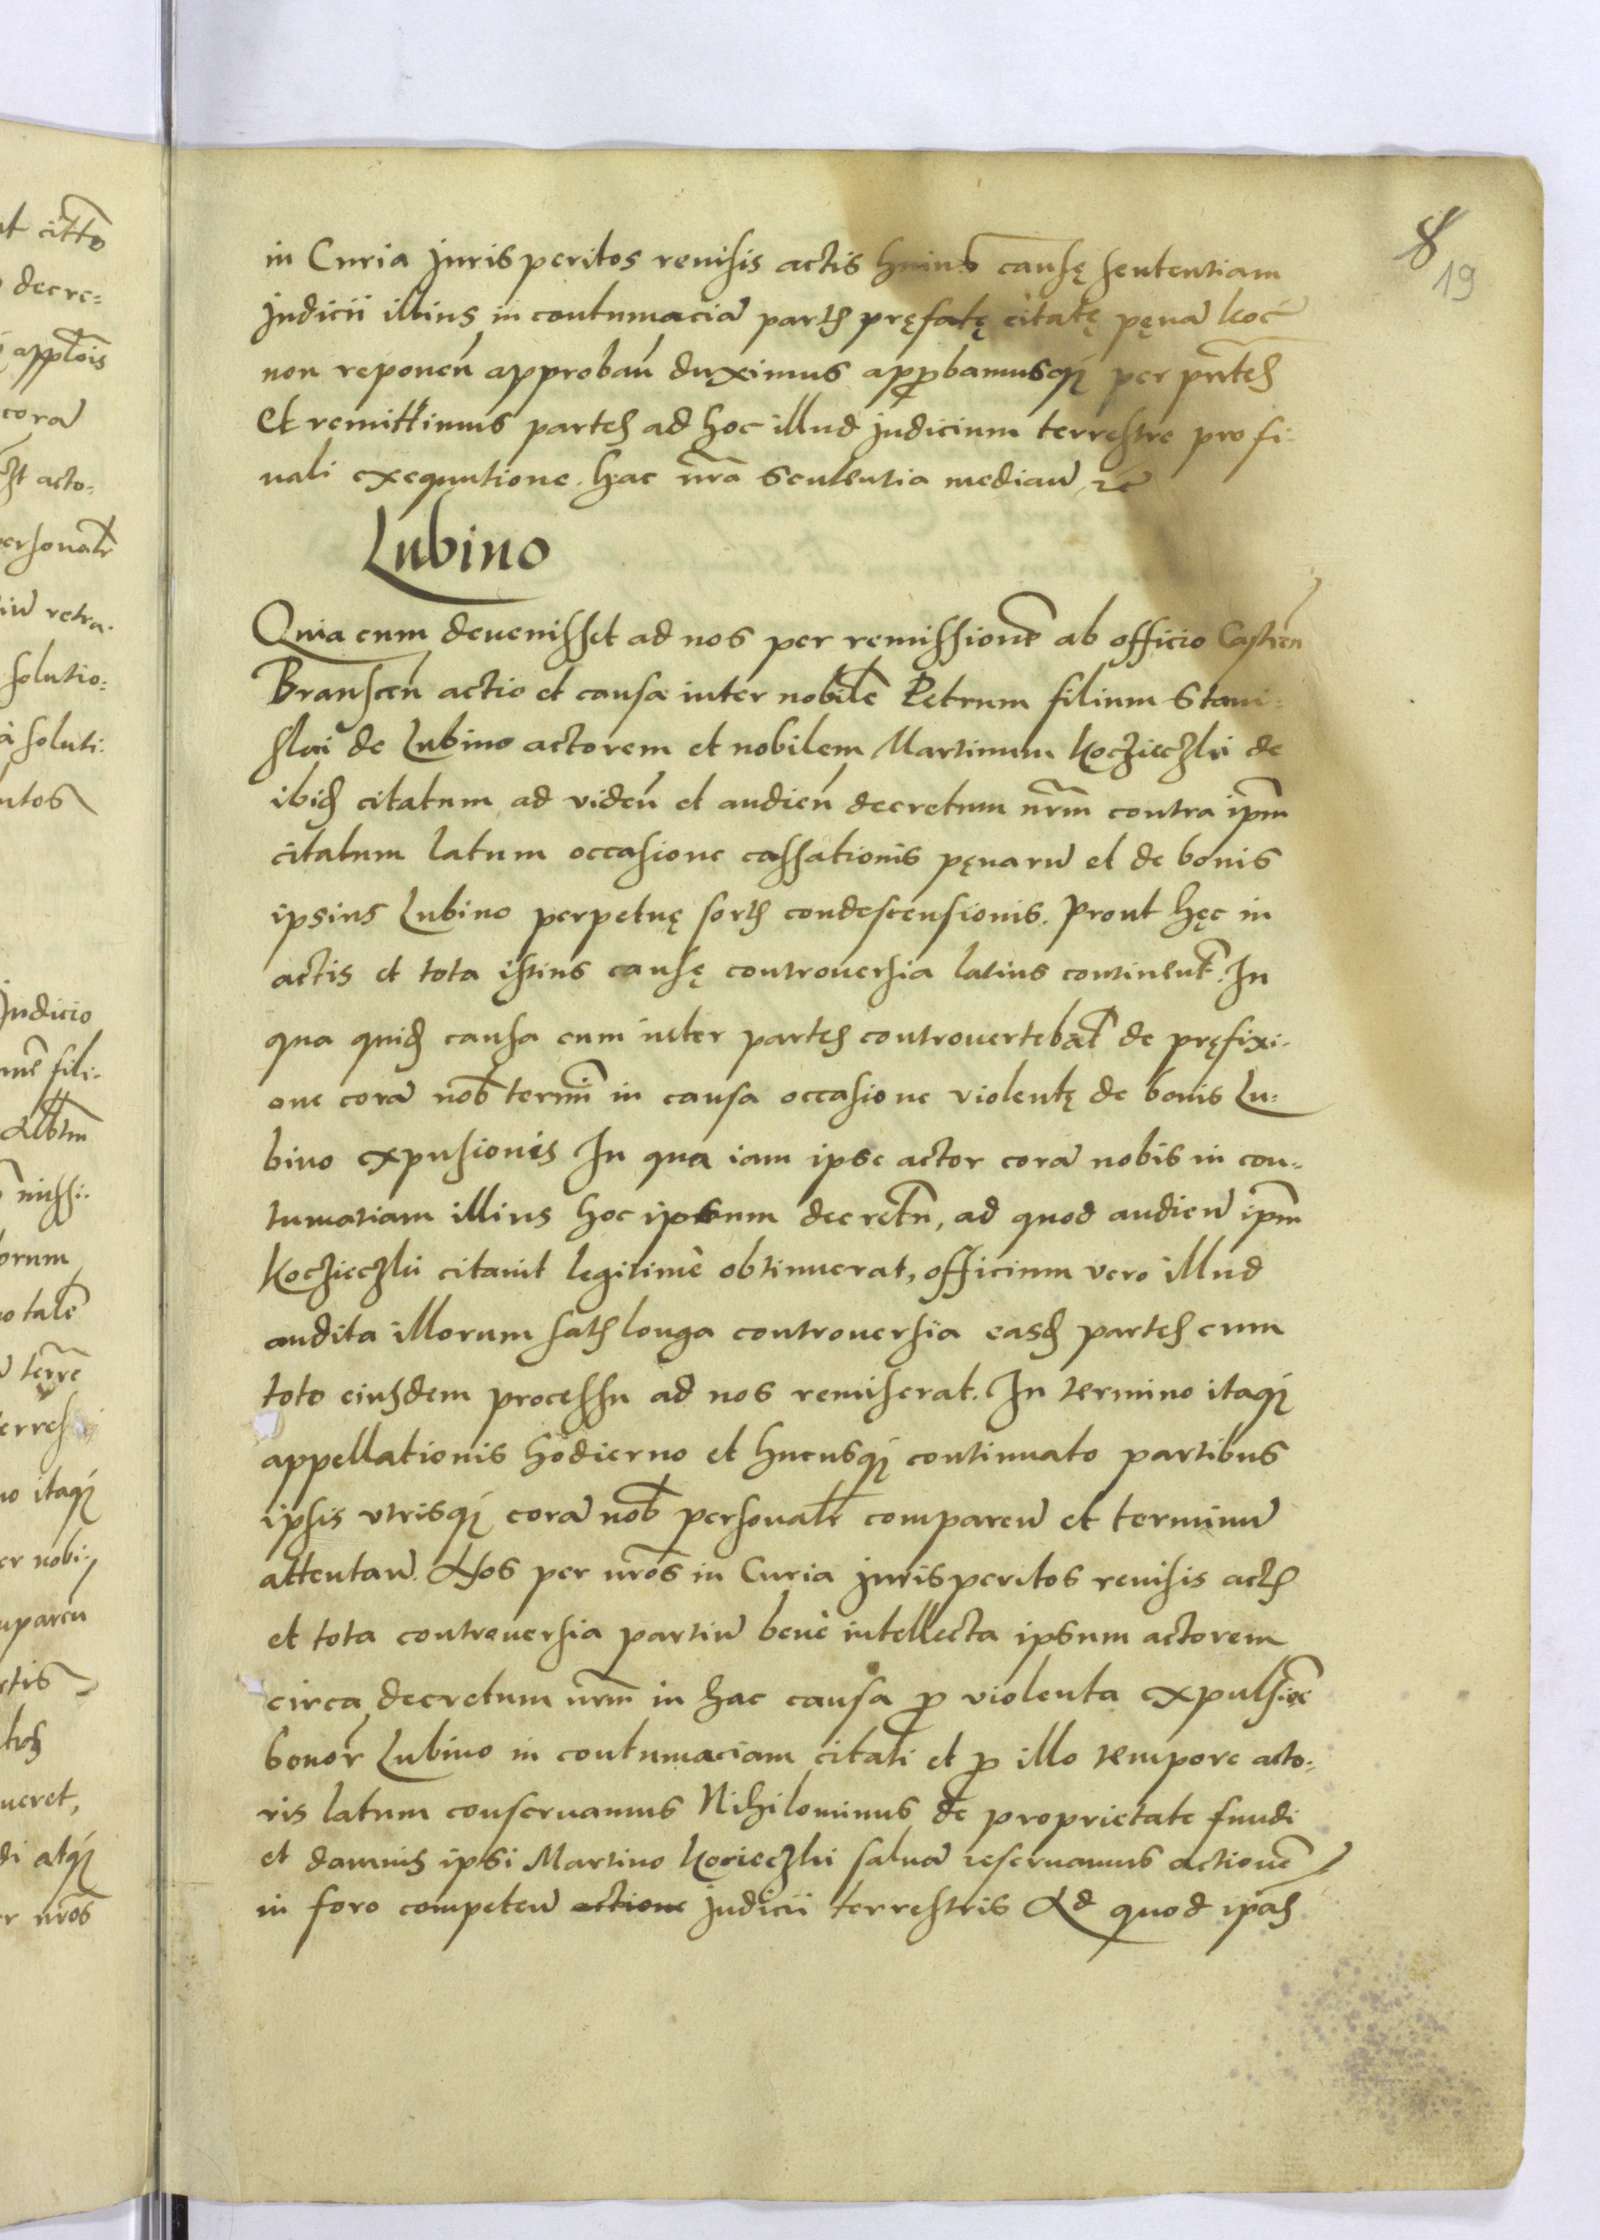 8
19
in Curia Jurisperitos reuisis actis huius causę sententiam
Judicii illius in contumaciā partis pręfatę citatę pęnā hoc
non reponeñ approbañ duximus approbamusq́ per p̄ntes
Et remittimus partes ad hoc illud judicium terrestre pro fi-
nali exequutione. hac n̄ra sententia median̄
Lubino
Quia cum deuenisset ad nos per remissionē ab officio Castreñ
Bransceñ actio et causa inter nobilē Petrum filium Stani-
slai de Lubino actorem et nobilem Martinum Koczieczki de
ibid citatum ad videñ et audieñ decretum nr̄m contra ipm̄
citatum latum occasione cassationis pęnarū et de bonis
ipsius Lubino perpetuę sortis condescensionis. Prout hęc in
actis et tota istius causę controuersia latius continentr̄. In
qua quid causa cum inter partes controuertebatr̄ de pręfixi-
one corā nob̄ termīi in causa occasione violentę de bonis Lu-
bino expusionis In qua iam ipse actor corā nobis in con-
tumatiam illius hoc ipsum decretū, ad quod audien̄ ipm̄
Koczieczki citauit legitimè obtinuerat, officium vero illud
audita illorum satis longa controuersia easd partes cum
toto eiusdem processu ad nos remiserat. In termino itaq́
appellationis hodierno et hucusq́ continuato partibus
ipsis vtrisq́ corā nob̄ personalr̄ comparen̄ et terminū
attentan̄. Nos per nr̄os in Curia jurisperitos reuisis actis
et tota controuersia partiū benè intellecta ipsum actorem
circa decretum nr̄m in hac causa ꝓ violenta expulsioē
bonor̄ Lubino in contumaciam citati et ꝓ illo tempore acto-
ris latum conseruamus Nihilominus de proprietate fundi
et damnis ipsi Martino Kocieczki saluā reseruamus actionē
in foro competen̄ actione judicii terrestris Ad quod ipas